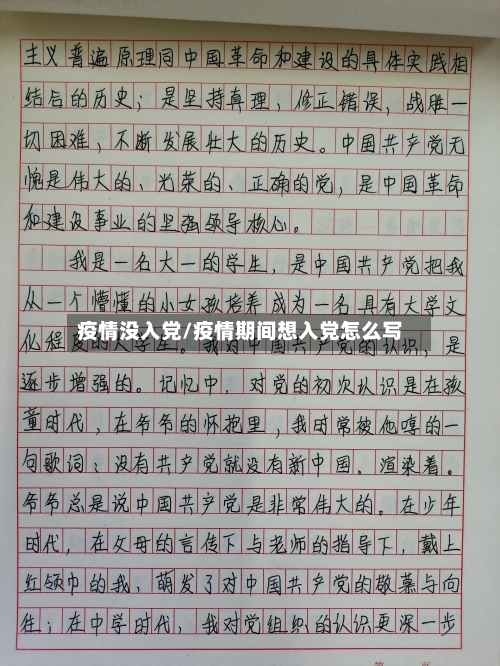 主义普遍原理同中国革命和建设的具体实践相
结合的历史；是坚持真理，修正错误，战胜一
切困难，不断发展壮大的历史。中国共产党无
愧是伟大的、光荣的、正确的党，是中国革命
和建设事业的坚强领导核心。
我是一名大一的学生，是中国共产党把我
从一个懵懂的小女孩培养成为一名具有大学文
疫情没入党/疫情期间想入党怎么写
化程度的大学生。我对中国共产党的认识，是
逐步增强的。记忆中，对党的初次认识是在孩
童时代，在爷爷的怀抱里，我时常被他哼的一
句歌词：没有共产党就没有新中国。渲染着。
爷爷总是说中国共产党是非常伟大的。在少年
时代，在父母的言传下与老师的指导下，戴上
红领巾的我，萌发了对中国共产党的敬慕与向
往；在中学时代，我对党组织的认识更深一步